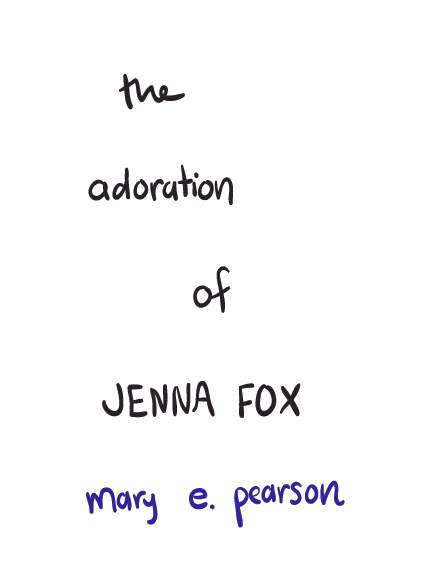 the
adoration
of
JENNA FOX
mary e. pearson